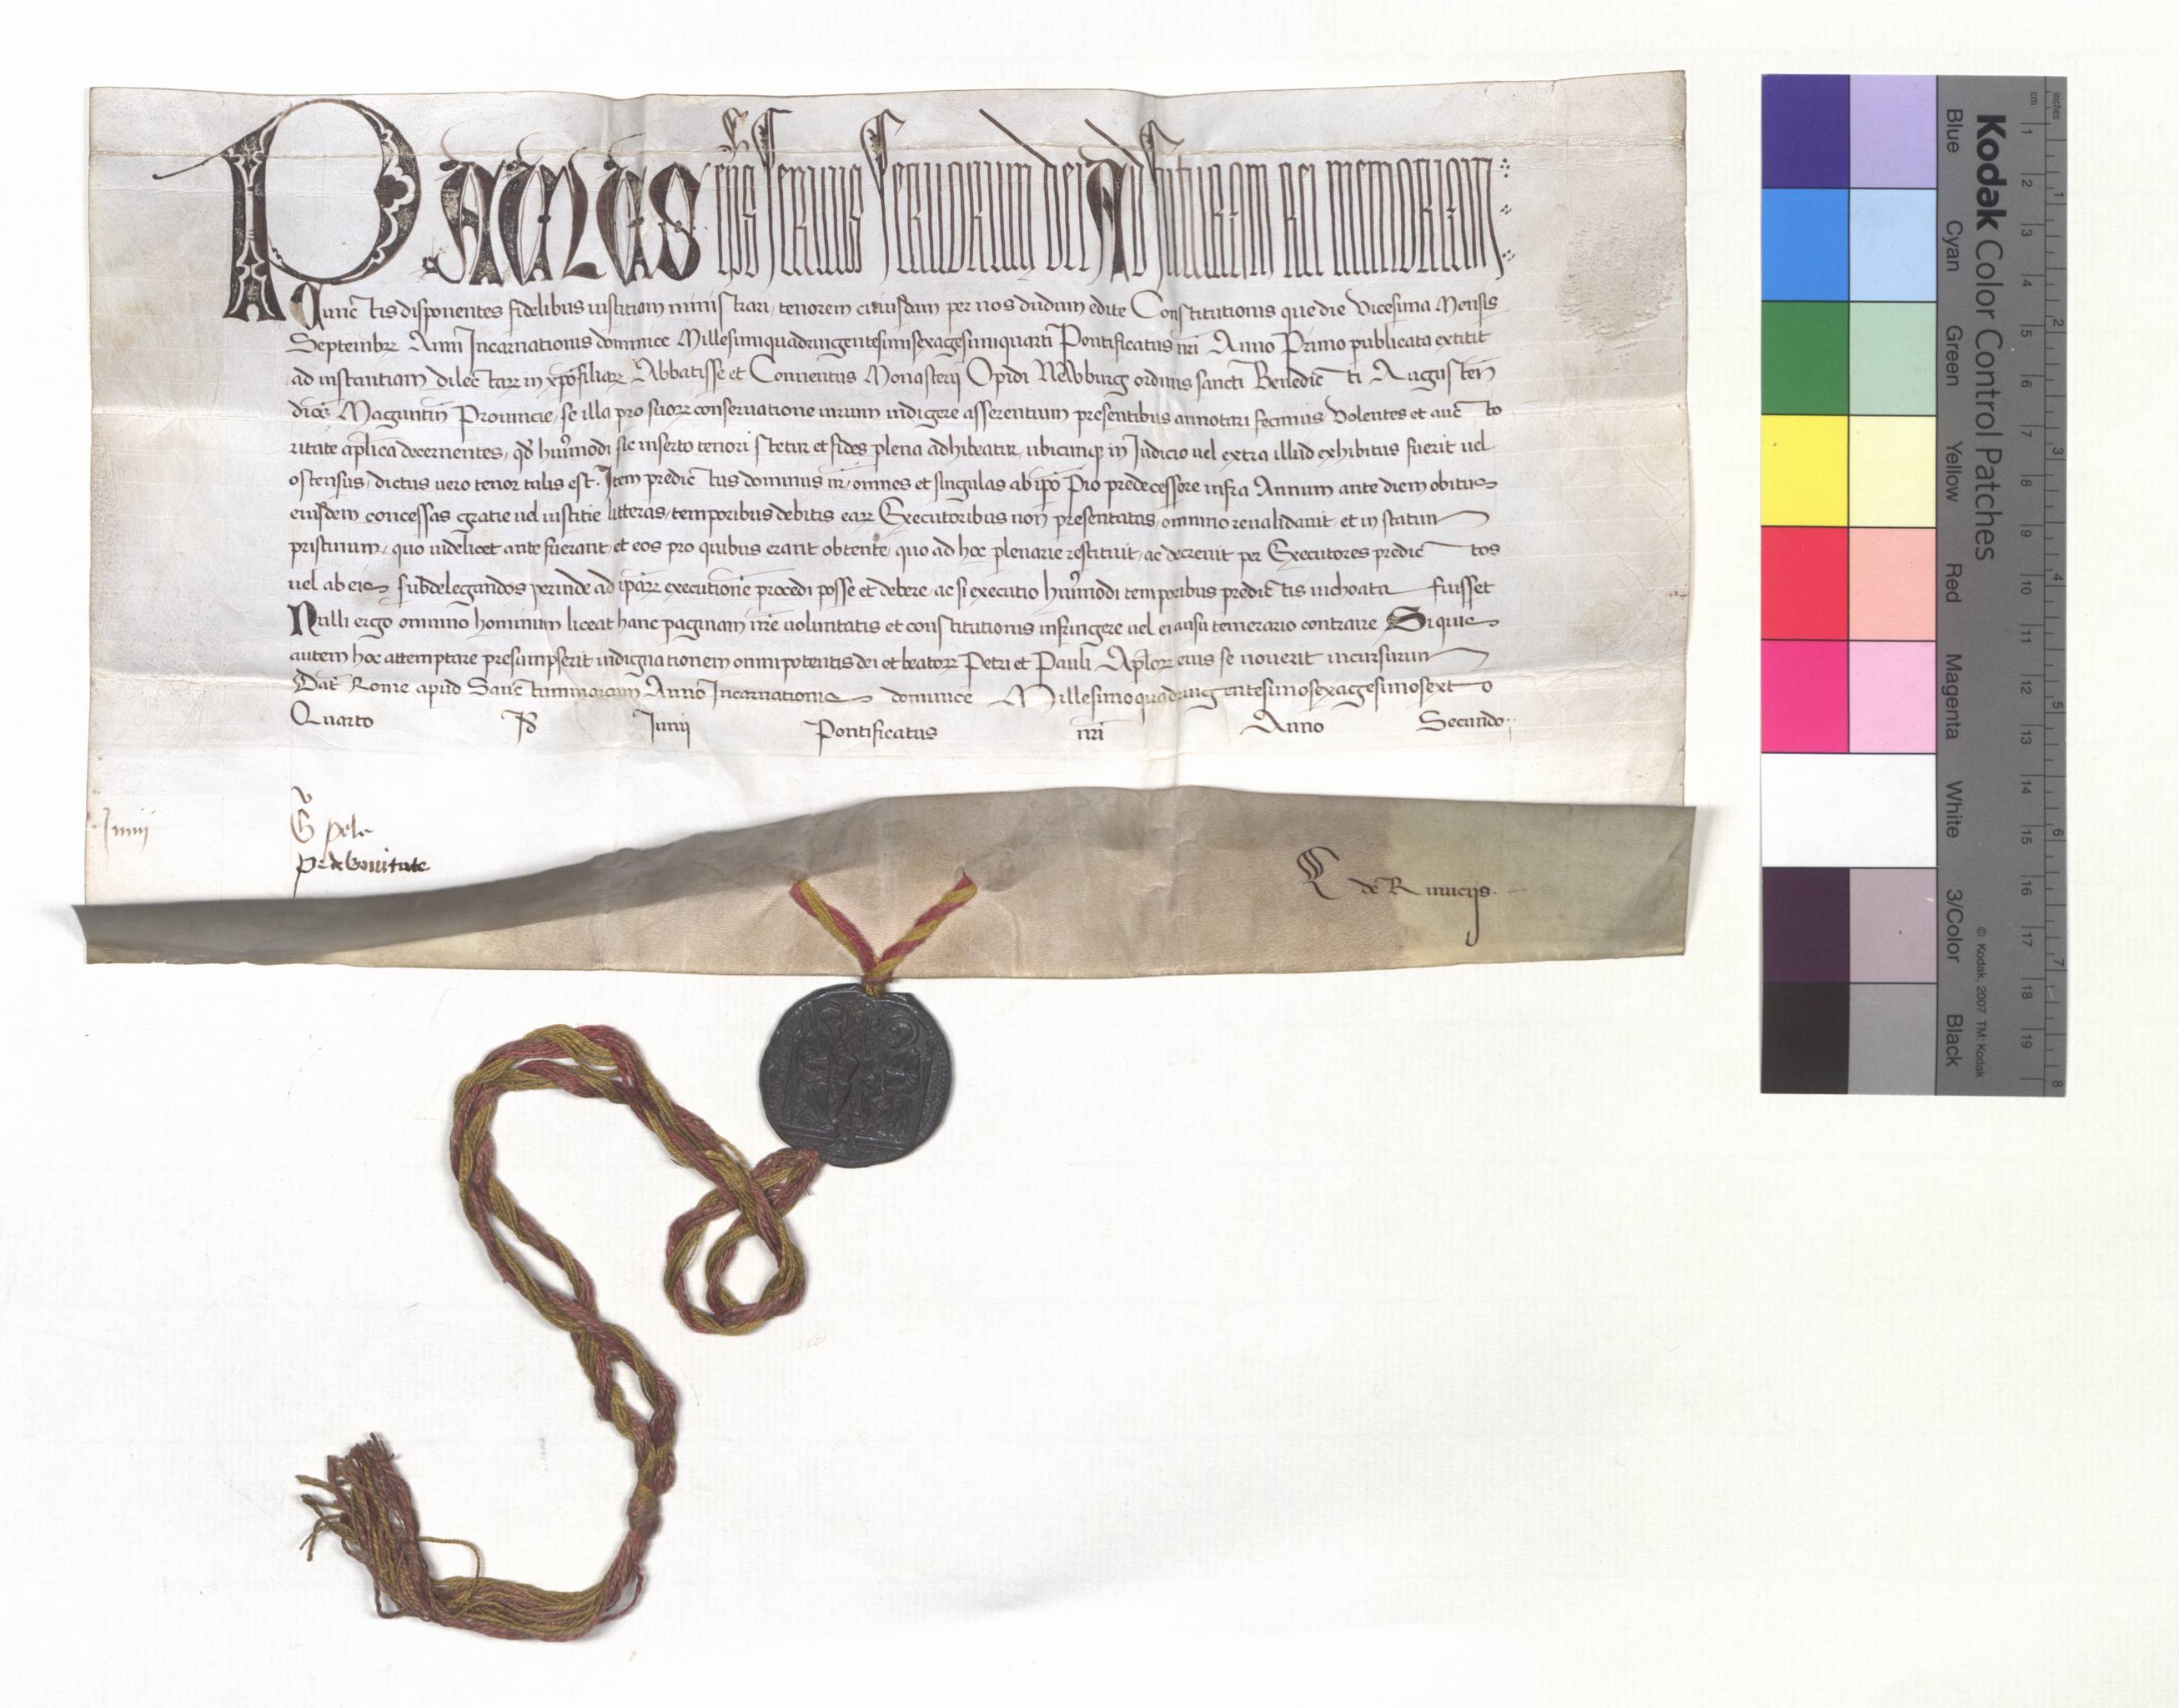 PAULUS ep̄s seruus seruorum dei Ad futuram rei memoriam
Cunc̄tis disponentes fidelibus iustitiam ministrari, tenorem cuiusdam per nos dudum edite Constitutionis que die Vicesima Mensis
Septembrꝝ Anni Incarnationis dominice Millesimiquadringentesimisexagesimiquarti Pontificatus nr̄i Anno Primo publicata extitit
ad instantiam dilec̄tarꝝ in xp̄o filiarꝝ Abbatisse et Conuentus Monasterij Opidi Newburg ordinis sancti Benedic̄ti Augusten̄
dioc̄ Maguntin̄ Prouincie, se illa pro suorꝝ conseruatione iurium indigere asserentium presentibus annotari fecimus Volentes et auc̄to
ritate ap̄lica decernentes, qd̄ hui9modi sic inserto tenori stetur et fides plena adhibeatur, ubicumqꝫ in Iudicio uel extra illud exhibitus fuerit uel
ostensus, dictus uero tenor talis est. Item predic̄tus dominus nr̄, omnes et singulas ab ip̄o Pio predecessore infra Annum ante diem obitus
eiusdem concessas gratie uel iustitie litteras, temporibus debitis earꝝ Executoribus non presentatas, omnino reualidauit, et in statum
pristinum, quo uidelicet ante fuerant, et eos pro quibus erant obtente, quo ad hoc plenarie restituit, ac decreuit per Executores predic̄tos
uel ab eis subdelegandos perinde ad ip̄arꝝ executione procedi posse et debere, ac si executio hui9modi temporibus predic̄tis inchoata fuisset
Nulli ergo omnino hominum liceat hanc paginam nr̄e uoluntatis et constitutionis infringere uel ei ausu temerario contraire Siquis
autem hoc attemptare presumpserit indignationem omnipotentis dei et beatorꝝ Petri et Pauli Ap̄lorꝝ eius se nouerit incursurum
Dat̄ Rome apud Sanc̄tummarcum Anno Incarnationis dominice Millesimoquadringentesimosexagesimosexto
Quarto Id̄ Iunij Pontificatus nr̄i Anno Secundo
Iunij
G pele
P de bonitate
L de Rinucijs.
Kodak Color Control Patches
Blue Cyan Green Yellow Red Magenta White 3/Color Black
© Kodak, 2007 TM: Kodak
cm 1 2 3 4 5 6 7 8 9 10 11 12 13 14 15 16 17 18 19
inches 1 2 3 4 5 6 7 8